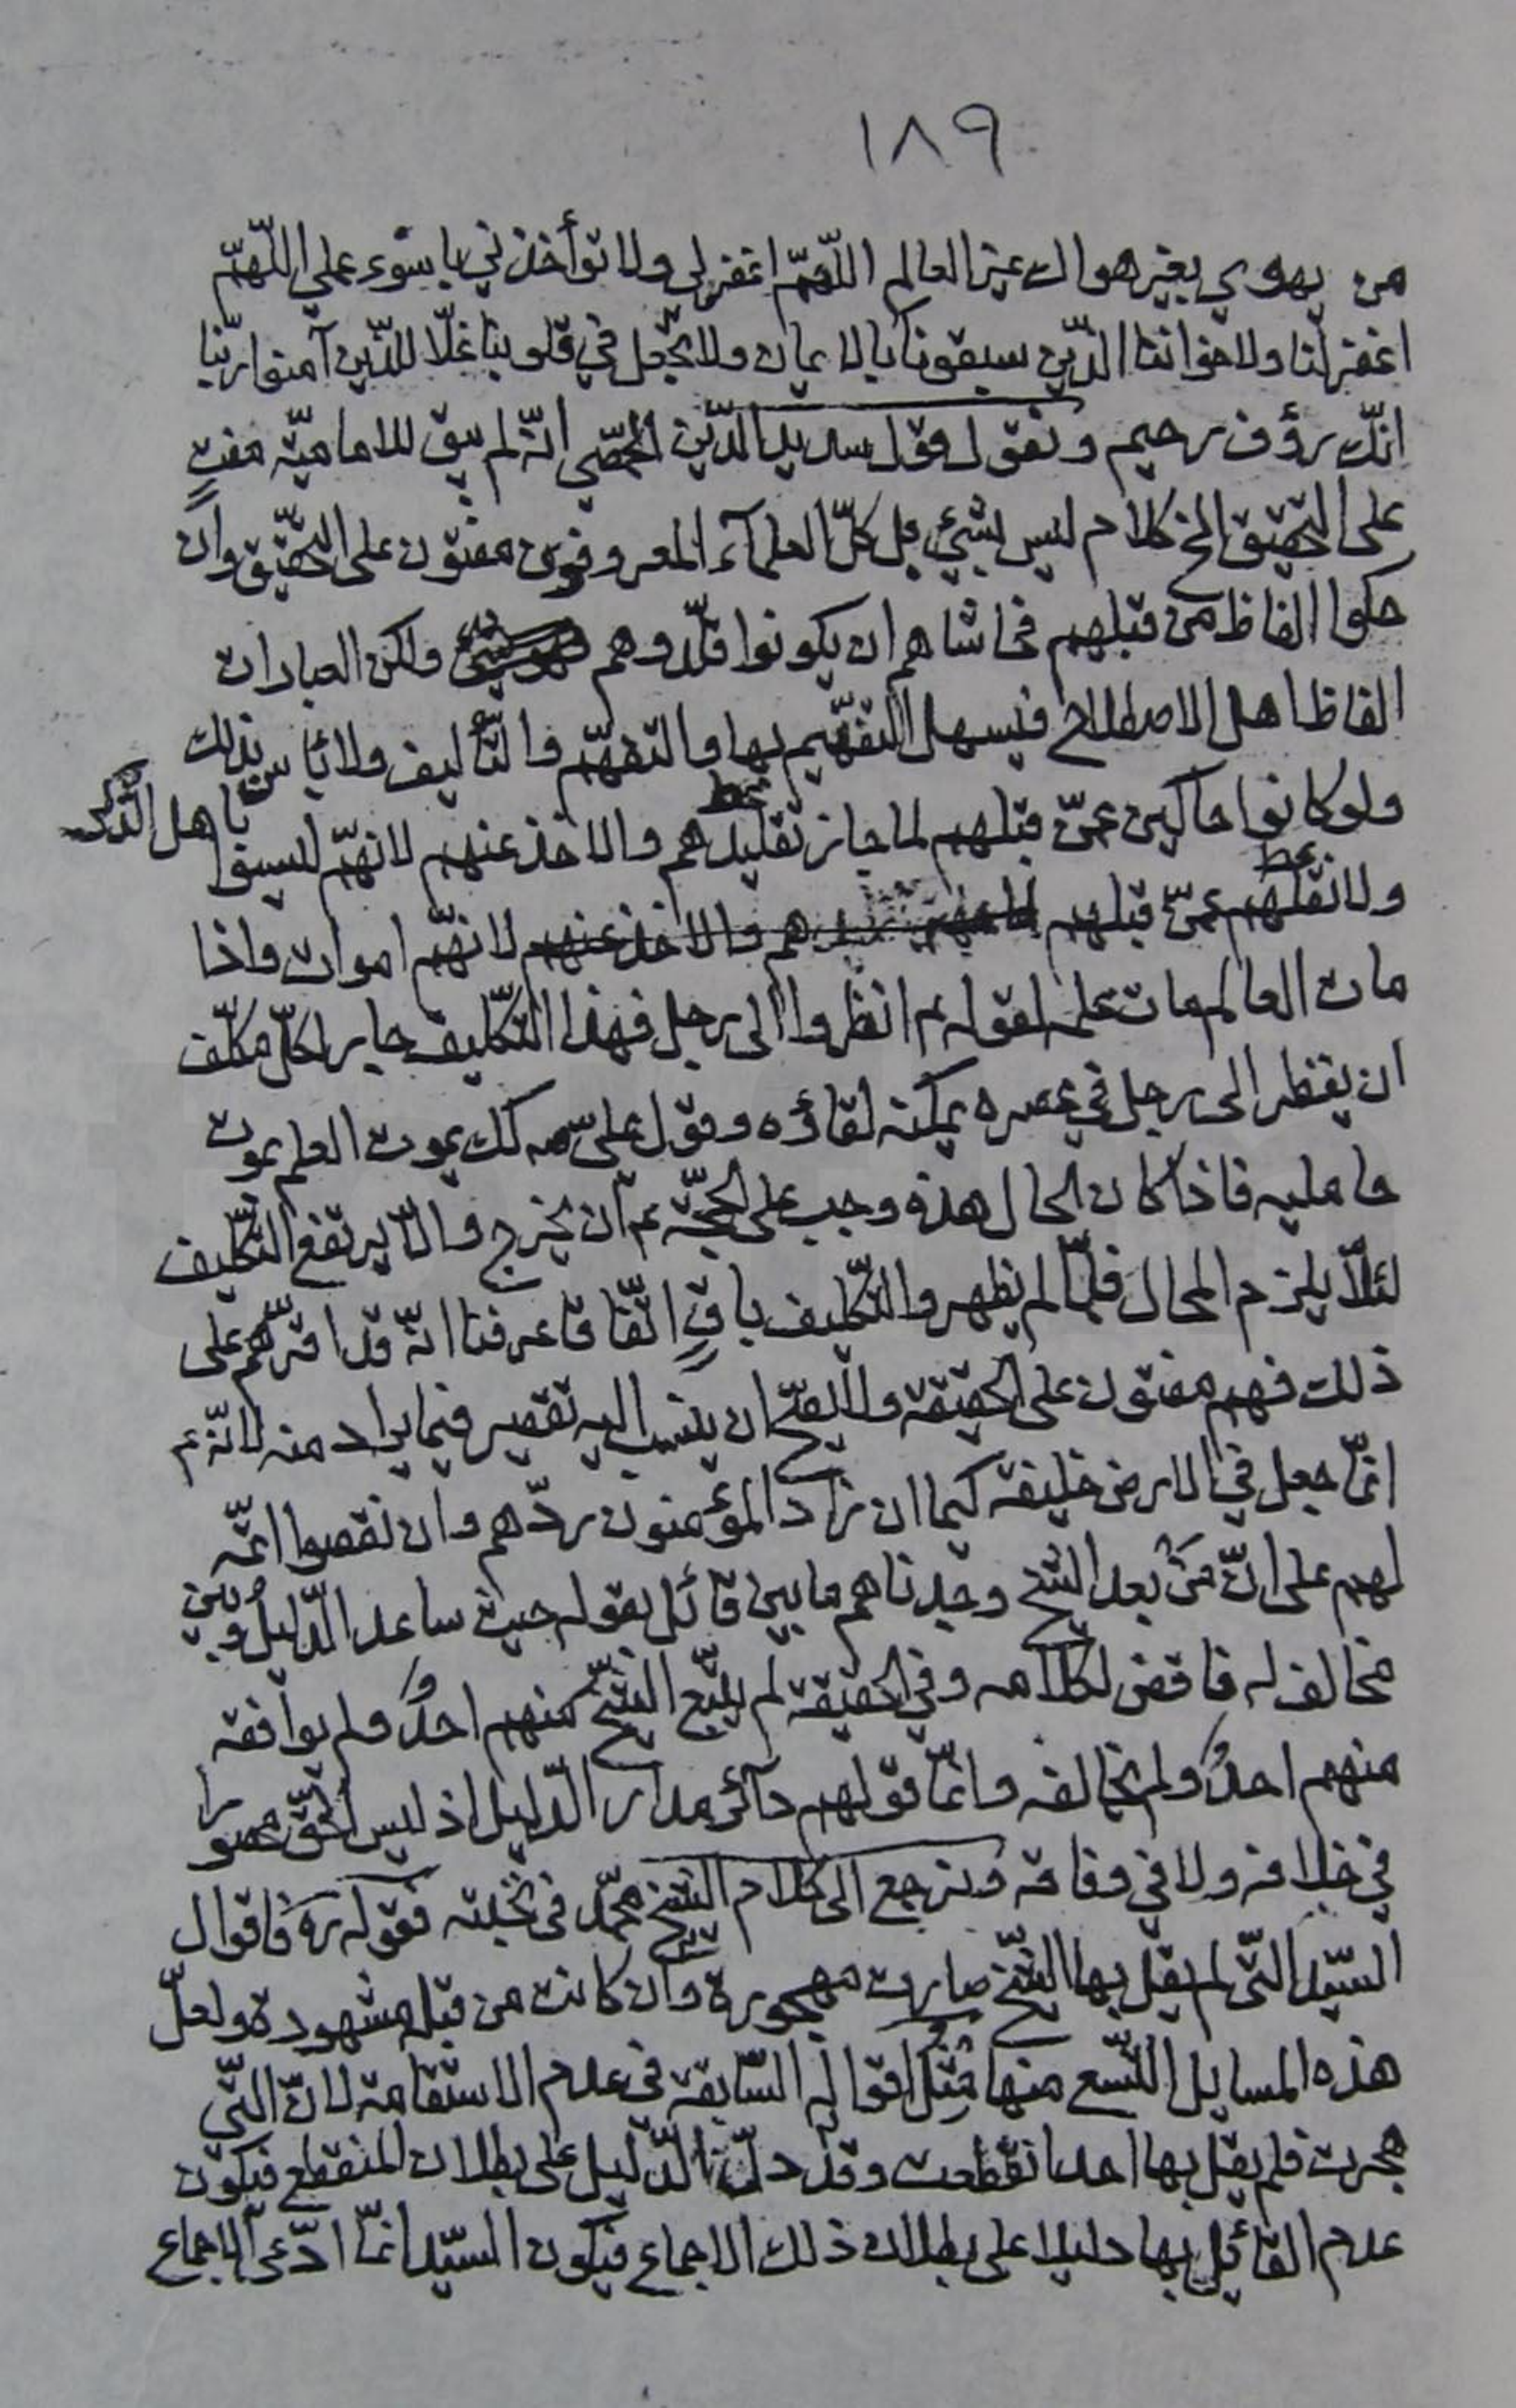 ١٨٩
من يهوي بغير هواك عين العالم اللّهمّ اغفر لي ولا تؤأخذني باسوء عملي اللّهمّ
اغفر لنا ولاخواننا الذّين سبقونا بالايمان ولا تجّعل في قلوبنا غلّا للذّين آمنوا ربّنا
انّك رؤف رحيم ونقول وقول سديد الدّين الحمّصي انّه لم يبق للاماميّه مفتٍ
على التّحقيق الخ كلام ليس بشيء بل كلّ العلمآء المعروفون مفتون على التّحقيق وان
حكوا الفاظ من قبلهم فحاشاهم ان يكونوا قلّدوهم ولكن العبارات
الفاظ اهل الاصطلاح فيسهل التّفهّيم بها والتفهّم والتّأليف ولا بأس بذلك
ولو كانوا حاكين عمّن قبلهم لما جاز تقليدهم والاخذ عنهم لانهّم ليسوا باهل الذّكر
ولا نقلهم عمّن قبلهم لانهّم اموات واذا
مات العالم مات علمه لقوله ع انظروا الى رجل فهذا التّكليف جار لكلّ مكلّف
ان ينظر الى رجل في عصره يمكنه لقاؤه وقول علي ع كك يموت العلم بموت
حامليه فاذا كان الحال هذه وجب على الحجّة ع ان يخرج والّا يرتفع التّكليف
لئلّا يلزم المحال فلمّا لم يظهر والتّكليف باقٍ اتّفاقا عرفنا انّه قد اقرّهم على
ذلك فهم مفتون على الحقيقة والّا لصّح ان ينسب اليه تقصير فيما يراد منه لانّه ع
انمّا جعل في الارض خليفة كيما ان زاد المؤمنون ردّهم وان نقصوا اتمّه
لهم على انّ من بعد الشّيخ وجدناهم ما بين قائل بقوله حيث ساعد الدّليل وبين
مخالف له ناقض لكلامه وفي الحقيقة لم يتّبع الشّيخ منهم احدٌ ولم يوافقه
منهم احدٌ ولم يخالفه وانمّا قولهم دآئر مدار الدّليل اذ ليس الحقّ محصورا
في خلافه ولا في وفاقه ونرجع الى كلام الشّيخ محمّد في نخبته فقوله ره فاقوال
السيّد التّي لم يقل بها الشّيخ صارت مهجورة وان كانت من قبل مشهورة ولعلّ
هذه المسايل التّسع منها مثل اقواله السّابقة في عدم الاستقامة لانّ التّي
هجرت فلم يقل بها احد انقطعت وقد دلّنا الدّليل على بطلان المنقطع فيكون
عدم القائل بها دليلا على بطلان ذلك الاجماع فيكون السيّد انمّا ادّعى الاجماع